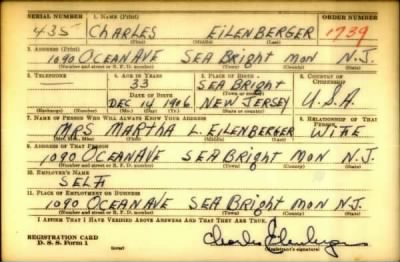 SERIAL NUMBER 1. NAME (Print) ORDER NUMBER
435 CHARLES EILENBERGER 1739
(First) (Middle) (Last)
2. ADDRESS (Print)
1090 OCEAN AVE SEA BRIGHT MON N.J.
(Number and street or R. F. D. number) (Town) (County) (State)
3. TELEPHONE 4. AGE IN YEARS 5. PLACE OF BIRTH 6. COUNTRY OF CITIZENSHIP
33 SEA BRIGHT
DATE OF BIRTH (Town or county)
DEC 14 1906 NEW JERSEY U.S.A.
(Exchange) (Number) (Mo.) (Day) (Yr.) (State or country)
7. NAME OF PERSON WHO WILL ALWAYS KNOW YOUR ADDRESS 8. RELATIONSHIP OF THAT PERSON
MRS MARTHA L. EILENBERGER WIFE
(Mr., Mrs., Miss) (First) (Middle) (Last)
9. ADDRESS OF THAT PERSON
1090 OCEAN AVE SEA BRIGHT MON N.J.
(Number and street or R. F. D. number) (Town) (County) (State)
10. EMPLOYER'S NAME
SELF
11. PLACE OF EMPLOYMENT OR BUSINESS
1090 OCEAN AVE SEA BRIGHT MON N.J.
(Number and street or R. F. D. number) (Town) (County) (State)
I AFFIRM THAT I HAVE VERIFIED ABOVE ANSWERS AND THAT THEY ARE TRUE.
REGISTRATION CARD Charles Eilenberger
D. S. S. Form 1 (over) (Registrant's signature)